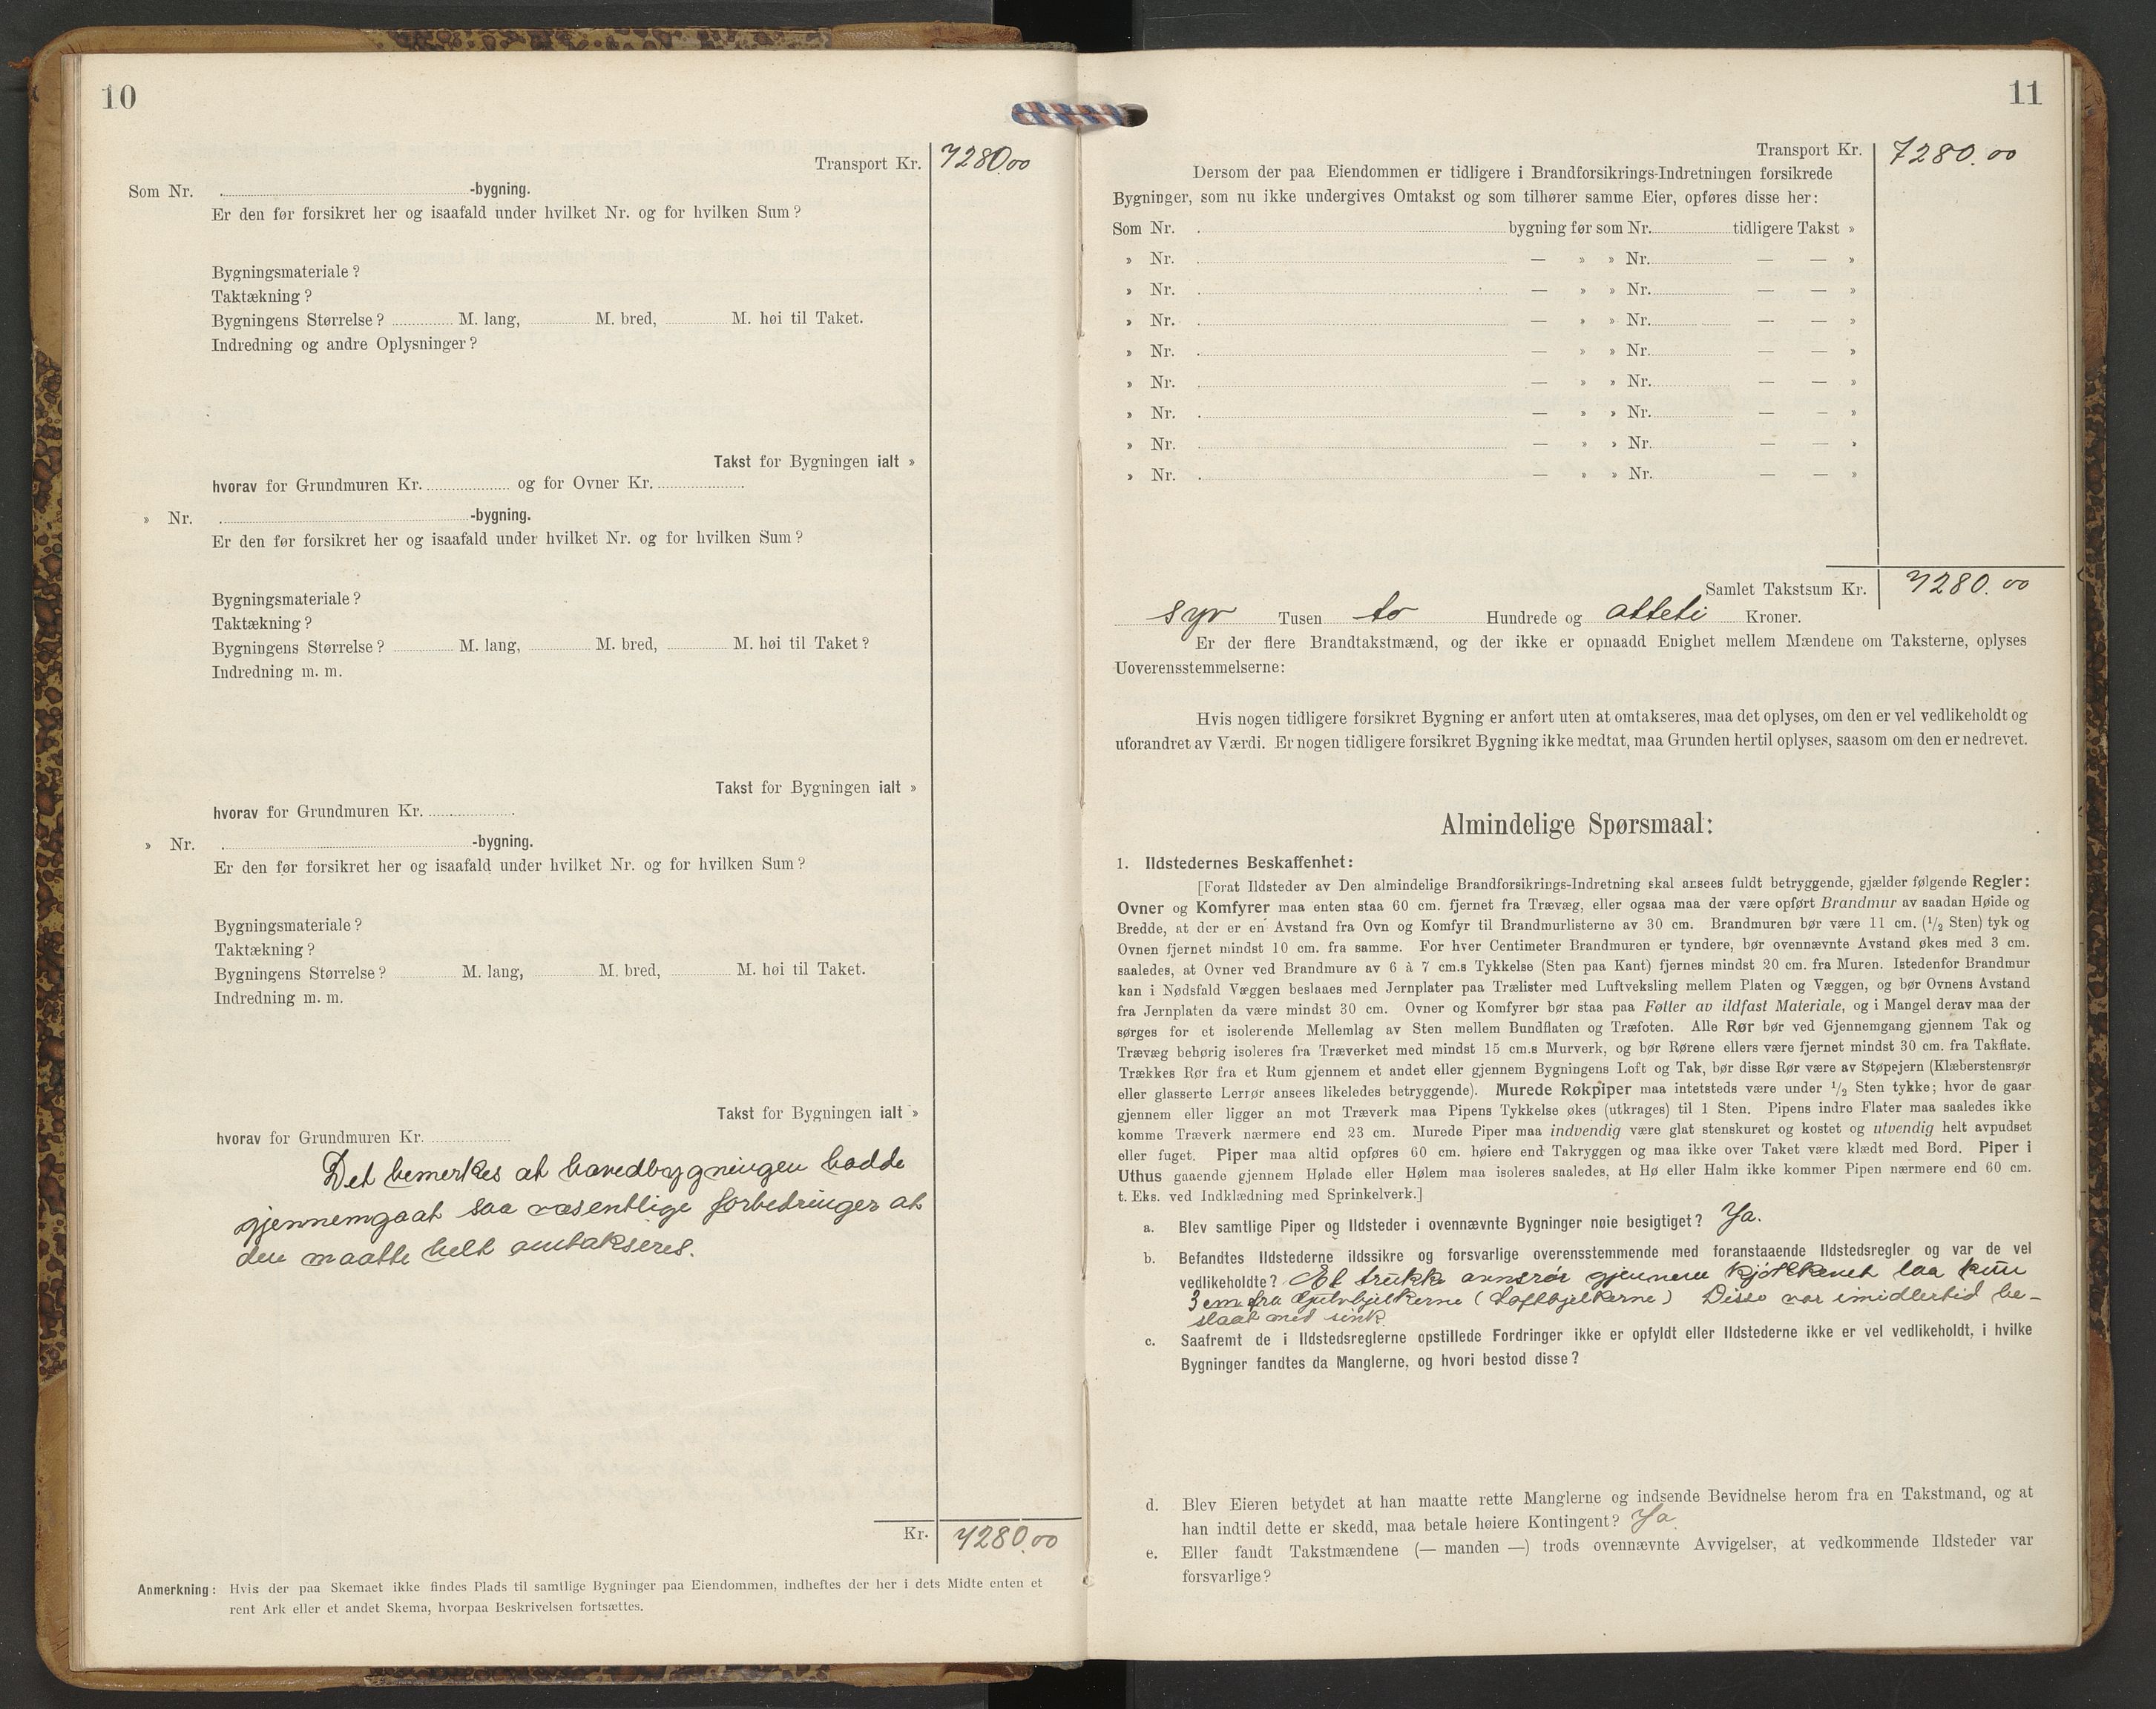 10
Transport Kr. 7280.00
Som Nr. -bygning.
Er den før forsikret her og isaafald under hvilket Nr. og for hvilken Sum?
Bygningsmateriale?
Taktækning?
Bygningens Størrelse? M. lang, M. bred, M. høi til Taket.
Indredning og andre Oplysninger?
Takst for Bygningen ialt »
hvorav for Grundmuren Kr. og for Ovner Kr.
» Nr. -bygning.
Er den før forsikret her og isaafald under hvilket Nr. og for hvilken Sum?
Bygningsmateriale?
Taktækning?
Bygningens Størrelse? M. lang, M. bred, M. høi til Taket?
Indredning m. m.
Takst for Bygningen ialt »
hvorav for Grundmuren Kr.
» Nr. -bygning.
Er den før forsikret her og isaafald under hvilket Nr. og for hvilken Sum?
Bygningsmateriale?
Taktækning?
Bygningens Størrelse? M. lang, M. bred, M. høi til Taket.
Indredning m. m.
Takst for Bygningen ialt »
hvorav for Grundmuren Kr.
Det bemerkes at hovedbygningen hadde
gjennemgaat saa væsentlige forbedringer at
den maatte helt omtakseres.
Kr. 7280.00
Anmerkning: Hvis der paa Skemaet ikke findes Plads til samtlige Bygninger paa Eiendommen, indheftes der her i dets Midte enten et
rent Ark eller et andet Skema, hvorpaa Beskrivelsen fortsættes.
11
Transport Kr. 7280.00
Dersom der paa Eiendommen er tidligere i Brandforsikrings-Indretningen forsikrede
Bygninger, som nu ikke undergives Omtakst og som tilhører samme Eier, opføres disse her:
Som Nr. bygning før som Nr. tidligere Takst »
» Nr. — » » Nr. — — »
» Nr. — » » Nr. — — »
» Nr. — » » Nr. — — »
» Nr. — » » Nr. — — »
» Nr. — » » Nr. — — »
» Nr. — » » Nr. — — »
» Nr. — » » Nr. — — »
» Nr. — » » Nr. — — »
Samlet Takstsum Kr. 7280.00
syv Tusen to Hundrede og otteti Kroner.
Er der flere Brandtakstmænd, og der ikke er opnaadd Enighet mellem Mændene om Taksterne, oplyses
Uoverensstemmelserne:
Hvis nogen tidligere forsikret Bygning er anført uten at omtakseres, maa det oplyses, om den er vel vedlikeholdt og
uforandret av Værdi. Er nogen tidligere forsikret Bygning ikke medtat, maa Grunden hertil oplyses, saasom om den er nedrevet.
Almindelige Spørsmaal:
1. Ildstedernes Beskaffenhet:
[Forat Ildsteder av Den almindelige Brandforsikrings-Indretning skal ansees fuldt betryggende, gjælder følgende Regler:
Ovner og Komfyrer maa enten staa 60 cm. fjernet fra Trævæg, eller ogsaa maa der være opført Brandmur av saadan Høide og
Bredde, at der er en Avstand fra Ovn og Komfyr til Brandmurlisterne av 30 cm. Brandmuren bør være 11 cm. (1/2 Sten) tyk og
Ovnen fjernet mindst 10 cm. fra samme. For hver Centimeter Brandmuren er tyndere, bør ovennævnte Avstand økes med 3 cm.
saaledes, at Ovner ved Brandmure av 6 à 7 cm.s Tykkelse (Sten paa Kant) fjernes mindst 20 cm. fra Muren. Istedenfor Brandmur
kan i Nødsfald Væggen beslaaes med Jernplater paa Trælister med Luftveksling mellem Platen og Væggen, og bør Ovnens Avstand
fra Jernplaten da være mindst 30 cm. Ovner og Komfyrer bør staa paa Føtter av ildfast Materiale, og i Mangel derav maa der
sørges for et isolerende Mellemlag av Sten mellem Bundflaten og Træfoten. Alle Rør bør ved Gjennemgang gjennem Tak og
Trævæg behørig isoleres fra Træverket med mindst 15 cm.s Murverk, og bør Rørene ellers være fjernet mindst 30 cm. fra Takflate.
Trækkes Rør fra et Rum gjennem et andet eller gjennem Bygningens Loft og Tak, bør disse Rør være av Støpejern (Klæberstensrør
eller glasserte Lerrør ansees likeledes betryggende). Murede Røkpiper maa intetsteds være under 1/2 Sten tykke; hvor de gaar
gjennem eller ligger an mot Træverk maa Pipens Tykkelse økes (utkrages) til 1 Sten. Pipens indre Flater maa saaledes ikke
komme Træverk nærmere end 23 cm. Murede Piper maa indvendig være glat stenskuret og kostet og utvendig helt avpudset
eller fuget. Piper maa altid opføres 60 cm. høiere end Takryggen og maa ikke over Taket være klædt med Bord. Piper i
Uthus gaaende gjennem Hølade eller Hølem maa isoleres saaledes, at Hø eller Halm ikke kommer Pipen nærmere end 60 cm.
t. Eks. ved Indklædning med Sprinkelverk.]
a. Blev samtlige Piper og Ildsteder i ovennævnte Bygninger nøie besigtiget? Ja.
b. Befandtes Ildstederne ildssikre og forsvarlige overensstemmende med foranstaaende Ildstedsregler og var de vel
vedlikeholdte? Et trukke ovnsrør gjennem kjøkkenet laa kun
3 cm fra (Loftbjelkerne) Disse var imidlertid be-
slaat med sink.
c. Saafremt de i Ildstedsreglerne opstillede Fordringer ikke er opfyldt eller Ildstederne ikke er vel vedlikeholdt, i hvilke
Bygninger fandtes da Manglerne, og hvori bestod disse?
d. Blev Eieren betydet at han maatte rette Manglerne og indsende Bevidnelse herom fra en Takstmand, og at
han indtil dette er skedd, maa betale høiere Kontingent? Ja.
e. Eller fandt Takstmændene (— manden —) trods ovennævnte Avvigelser, at vedkommende Ildsteder var
forsvarlige?